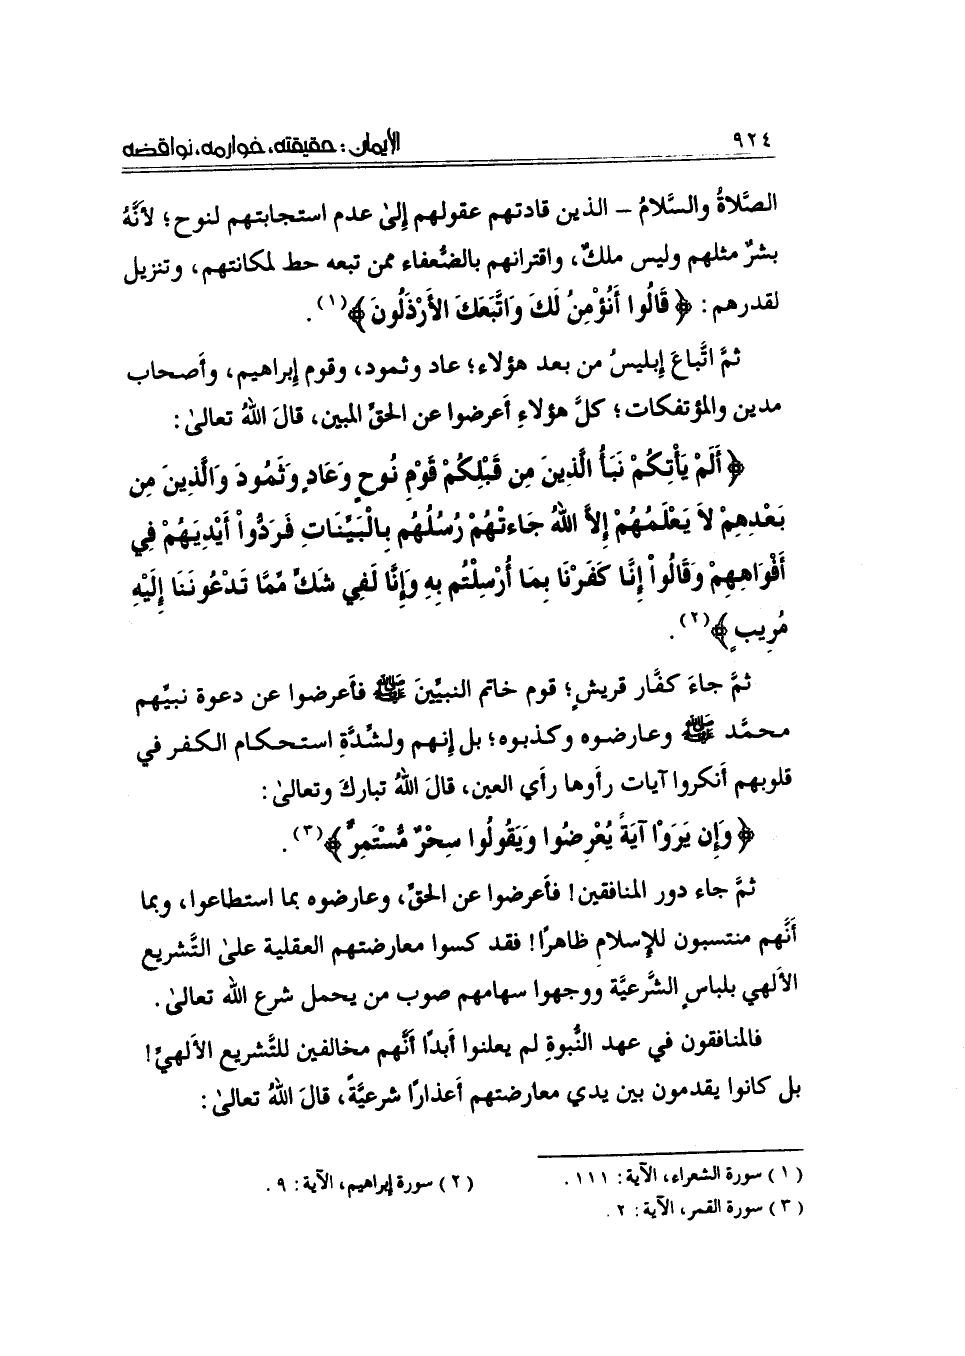 ٩٢٤
الإيمان : حقيقته، خوارمه، نواقضه
الصَّلاةُ والسَّلامُ – الذين قادتهم عقولهم إلىٰ عدم استجابتهم لنوح؛ لأنَّهُ
بشرٌ مثلهم وليس ملكٌ، واقترانهم بالضُّعفاء ممن تبعه حط لمكانتهم، وتنزيل
لقدرهم: ﴿قَالُوا أَنُؤْمِنُ لَكَ وَاتَّبَعَكَ الأَرْذَلُونَ﴾(١).
ثمَّ اتَّباعَ إبليسُ من بعد هؤلاء؛ عاد وثمود، وقوم إبراهيم، وأصحاب
مدين والمؤتفكات؛ كلَّ هؤلاءِ أعرضوا عن الحقِّ المبين، قالَ اللهُ تعالىٰ:
﴿أَلَمْ يَأْتِكُمْ نَبَأُ الَّذِينَ مِن قَبْلِكُمْ قَوْمِ نُوحٍ وَعَادٍ وَثَمُودَ وَالَّذِينَ مِن
بَعْدِهِمْ لاَ يَعْلَمُهُمْ إِلاَّ اللهُ جَاءتْهُمْ رُسُلُهُم بِالْبَيِّنَاتِ فَرَدُّواْ أَيْدِيَهُمْ فِي
أَفْوَاهِهِمْ وَقَالُواْ إِنَّا كَفَرْنَا بِمَا أُرْسِلْتُم بِهِ وَإِنَّا لَفِي شَكٍّ مِّمَّا تَدْعُونَنَا إِلَيْهِ
مُرِيبٍ﴾(٢).
ثمَّ جاءَ كفَّار قريشٍ؛ قوم خاتم النبيِّينَ ﷺ فأعرضوا عن دعوة نبيِّهم
محمَّد ﷺ وعارضوه وكذبوه؛ بل إنهم ولشدَّةِ استحكام الكفر في
قلوبهم أنكروا آيات رأوها رأي العين، قالَ اللهُ تباركَ وتعالىٰ:
﴿وَإِن يَرَوْا آيَةً يُعْرِضُوا وَيَقُولُوا سِحْرٌ مُّسْتَمِرٌّ﴾(٣).
ثمَّ جاء دور المنافقين! فأعرضوا عن الحقِّ، وعارضوه بما استطاعوا، وبما
أنَّهم منتسبون للإسلامِ ظاهرًا! فقد كسوا معارضتهم العقلية علىٰ التَّشريع
الألهي بلباسٍ الشَّرعيَّة ووجهوا سهامهم صوب من يحمل شرع الله تعالىٰ.
فالمنافقون في عهد النُّبوةِ لم يعلنوا أبدًا أنَّهم مخالفين للتَّشريع الألهيِّ!
بل كانوا يقدمون بين يدي معارضتهم أعذارًا شرعيَّةً، قالَ اللهُ تعالىٰ:
(١) سورة الشعراء، الآية: ١١١.
(٢) سورة إبراهيم، الآية: ٩.
(٣) سورة القمر، الآية: ٢.